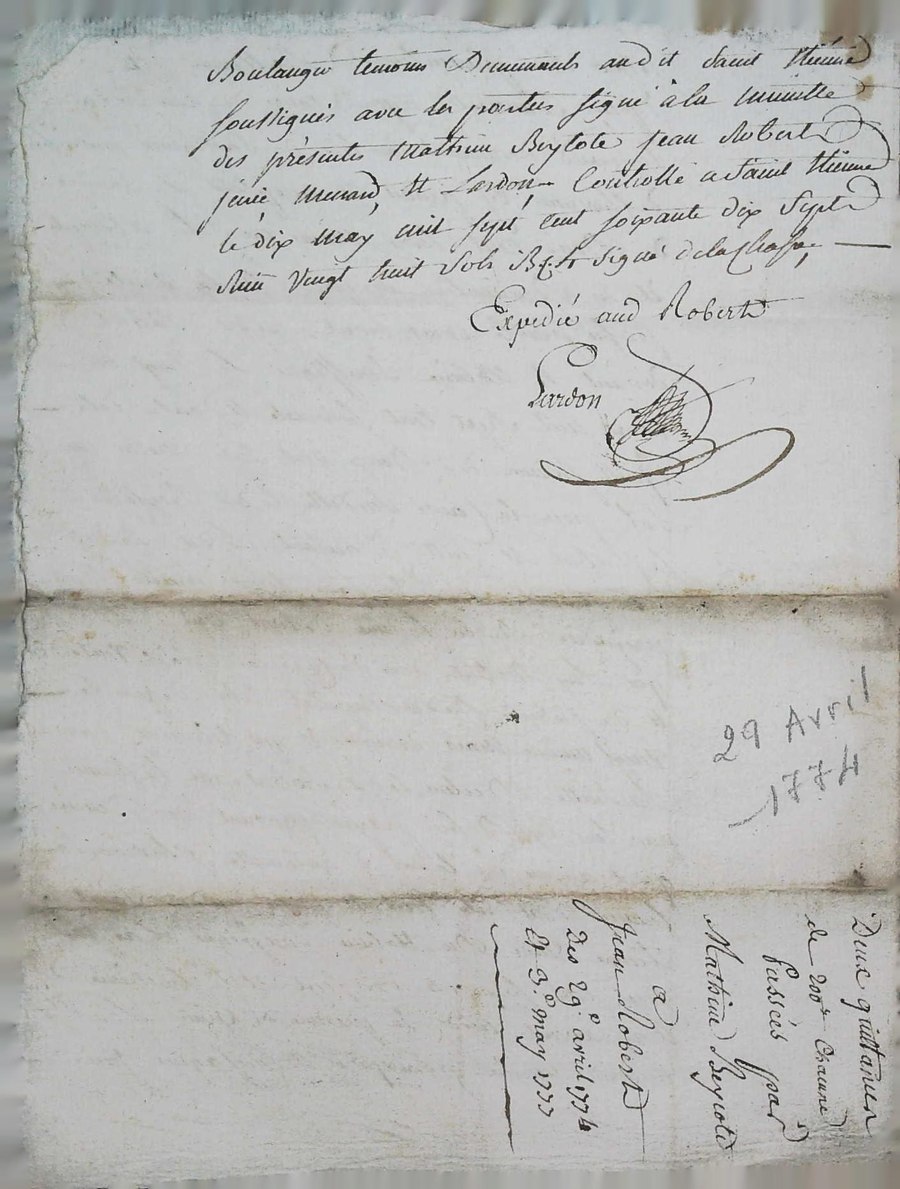 Boulanger temoins Demeurants audit Saint Etienne
soussignés avec les parties signé à la minutte
des présentes Mathieu Beylote Jean Robert
Menard, et Lardon, Controllé a Saint Etienne
le dix may mil sept cent soixante dix sept
Reçu vingt huit sols signé Delachase,
Expedié aud Robert
Lardon
29 Avril
1774
Deux quittances
de 200# Chacune
Passées par
Mathieu Beylote
a
Jean Robert
Des 29e avril 1774
Et 3e may 1777